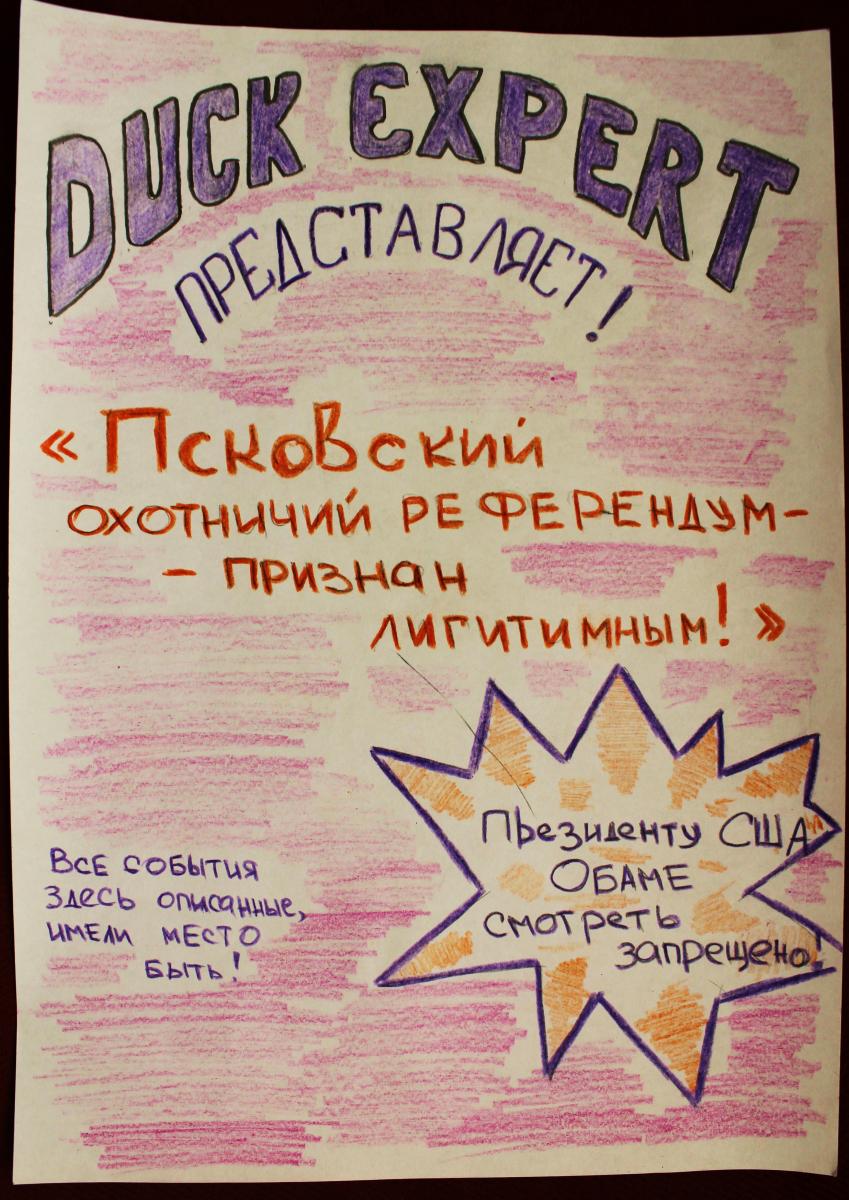 DUCK EXPERT
ПРЕДСТАВЛЯЕТ!
«Псковский
ОХОТНИЧИЙ РЕФЕРЕНДУМ-
- ПРИЗНАН
ЛИГИТИМНЫМ!»
ПЬЕЗИДЕНТУ США
ОБАМЕ
СМОТРЕТЬ
запрещено!
ВСЕ СОБЫТИЯ
ЗДЕСЬ ОПИСАННЫЕ,
ИМЕЛИ МЕСТО
БЫТЬ!